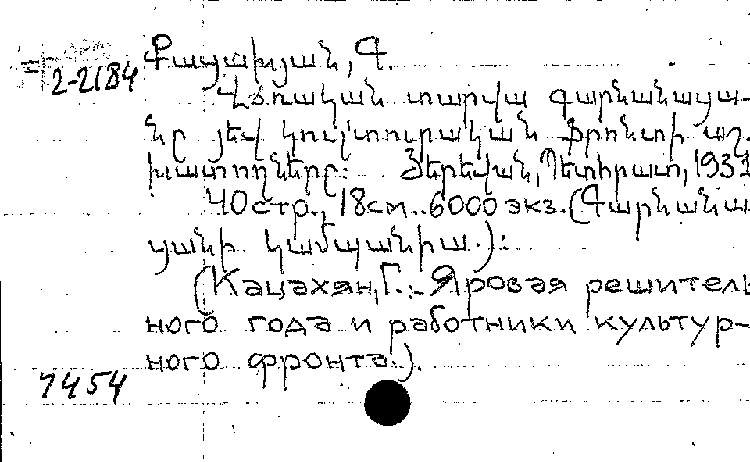 2-2184 Քացախյան, Գ.
Վճռական տարվա գարնանացա-
նը յեվ կուլտուրական ֆրոնտի աշ-
խատողները: Յերեվան, Պետհրատ, 1931
40 стр., 18см. 6000 экз. (Գարնանա
ցանի կամպանիա.):
(Кацахян, Г. Яровая решитель
ного года и работники культур-
ного фронта.).
7454